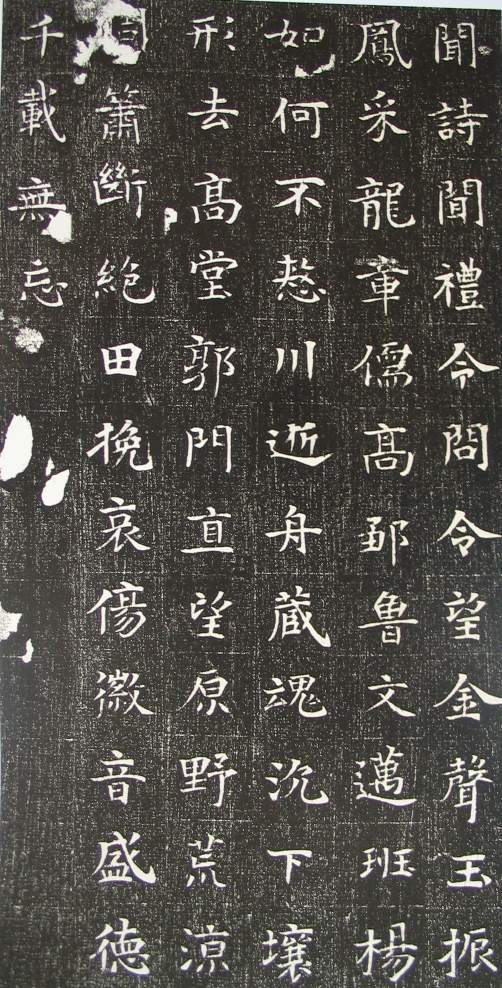 聞詩聞禮令問令望金聲玉振
鳳采龍章儒高鄒魯文邁班楊
如何不憗川逝舟藏魂沉下壤
形去高堂郭門直望原野荒涼
簫斷絶田挽哀傷徽音盛德
千載無忘